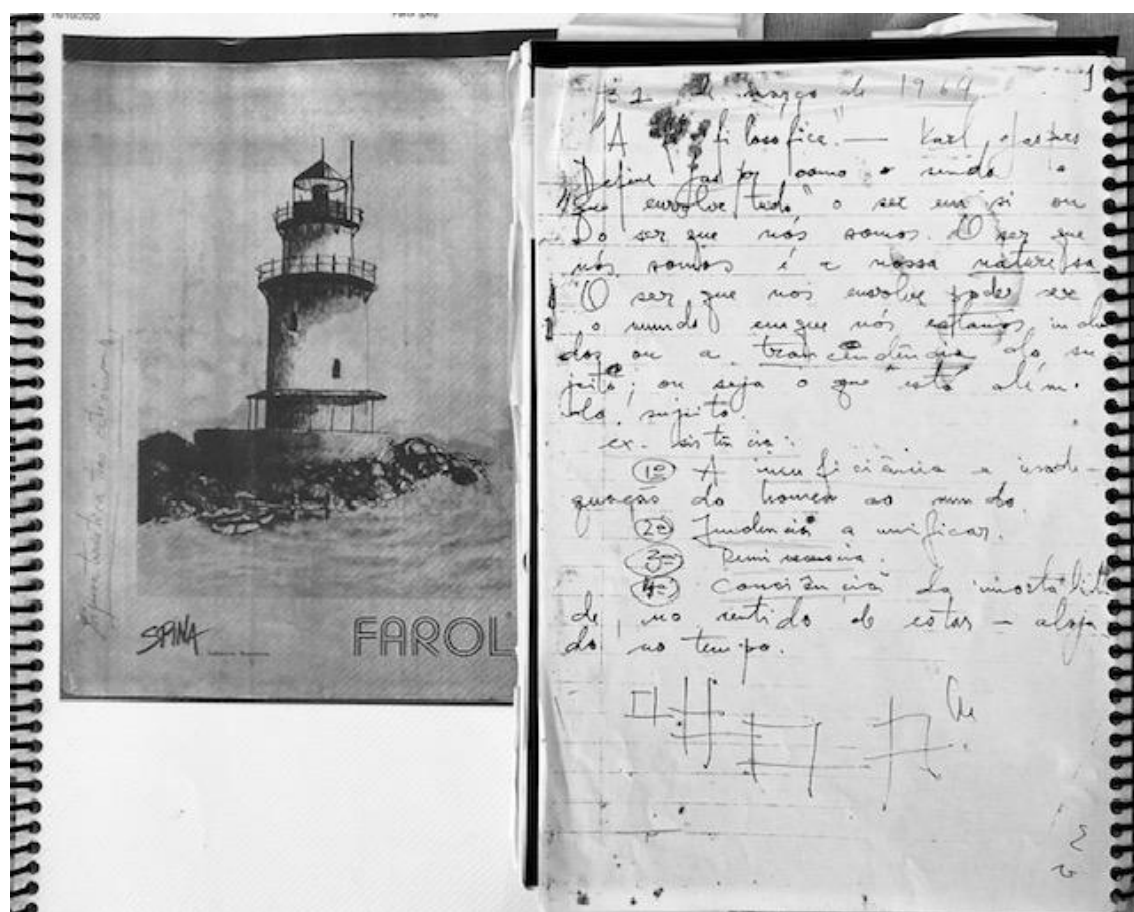 16/10/2020
SPINA
FAROL
1
de março de 1969
"A filosófica" — Karl Jaspers
Define como o sendo o
que envolve tudo" o ser em si ou
Do ser que nós somos. O ser que
nós somos é a nossa naturesa
O ser que nos envolve poder ser
o mundo em que nós estamos inclui
dos ou a transcendência do su
jeito; ou seja o que está além.
do sujeito.
ex-sistência:
1º A insuficiência e inade-
quação do homem ao mundo
2º Tendência a unificar.
3º Reminiscencia.
4º Consciência da imortalida
de, no sentido de estar - aloja
do no tempo.